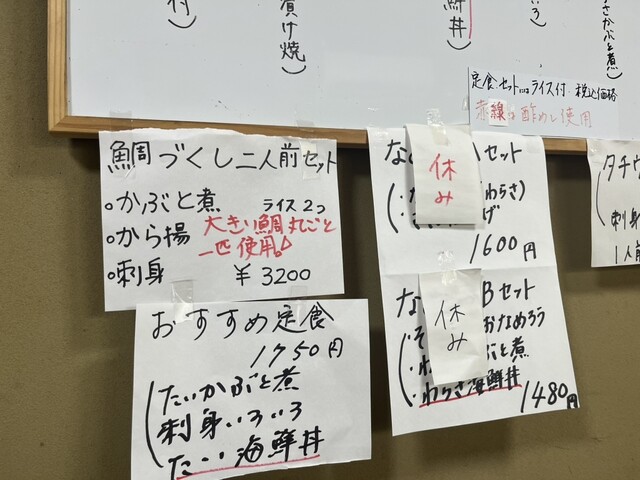 付
漬け焼)
鮮丼
いろ)
さかぶと煮)
定食 セットにはライス付. 税込価格
赤線は酢めし使用
鯛づくし二人前セット
・かぶと煮 ライス2つ
・から揚
・刺身
大きい鯛丸ごと
一匹使用!
¥3200
おすすめ定食
1750円
(たいかぶと煮
刺身いろいろ
たい海鮮丼
な Aセット
休み
わらさ)
げ
1600円
な Bセット
休み
おなめろう
ぶと煮
・わらさ海鮮丼)
1480円
タチウ
刺身
1人前